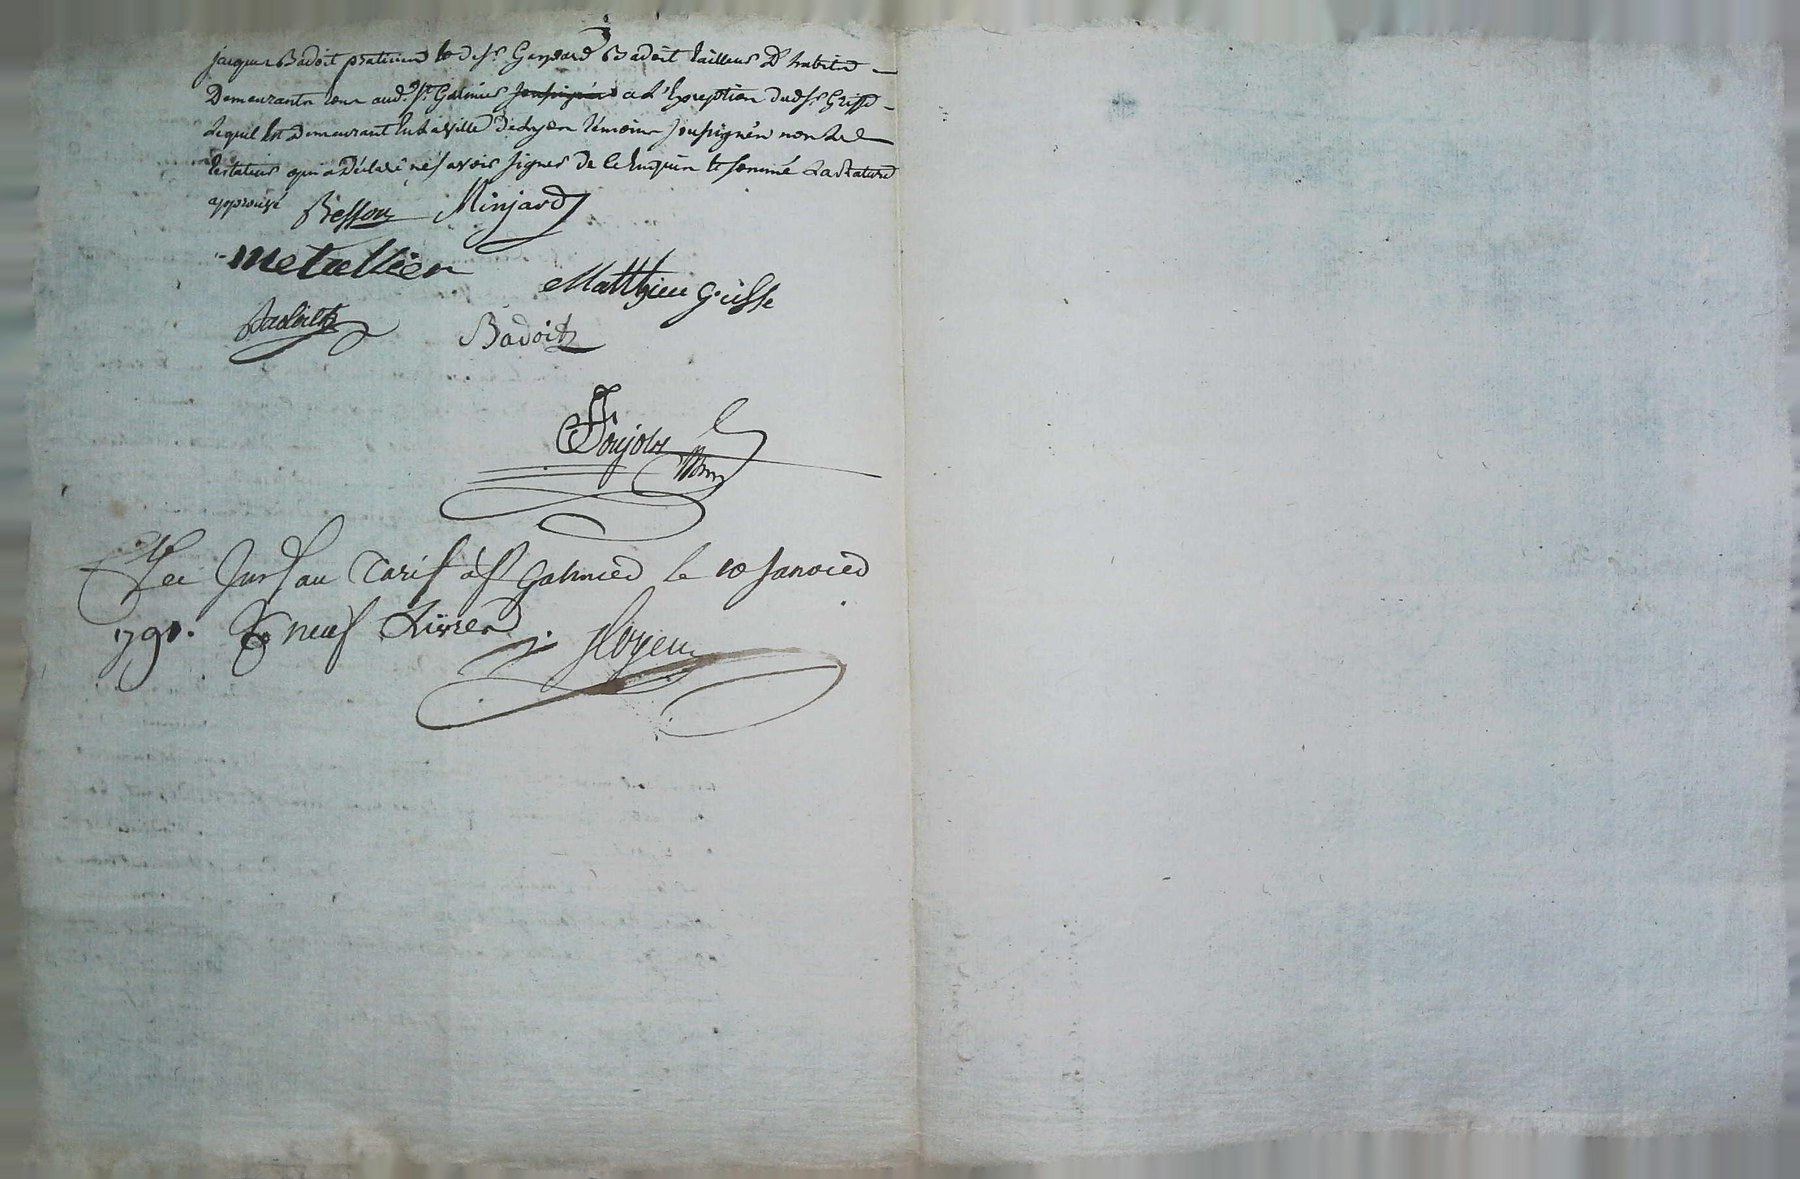 jacques Badoit praticien et de sr. Gaspard Badoit tailleur d'habits
Demeurants tous aud. St. Galmier soussignés a L'Exception dud. sr. Grisse
Lequel Est Demeurant En La ville De Lyon témoins soussignés non Le
testateur qui a Déclaré ne savoir signer de ce Enquis et sommé La Rature
approuvé Besson Minjard
metallier
Matthieu Grisse
Badoit
Badoit
Ponjols
vu sur au Tarif à St Galmier le 10 Janvier
1791. neuf Livres